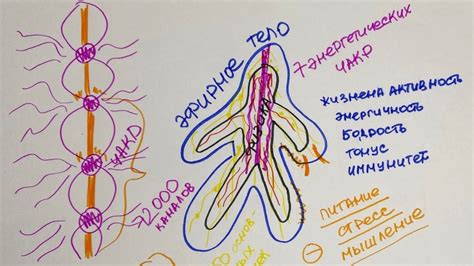 ЭФИРНОЕ ТЕЛО
7 ЭНЕРГЕТИЧЕСКИХ
ЧАКР
ЖИЗНЕНА АКТИВНОСТЬ
ЭНЕРГИЧНОСТЬ
БОДРОСТЬ
ТОНУС
ИММУНИТЕТ
ЧАКР
72000
КАНАЛОВ
ПИТАНИЕ
СТРЕСС
МЫШЛЕНИЕ